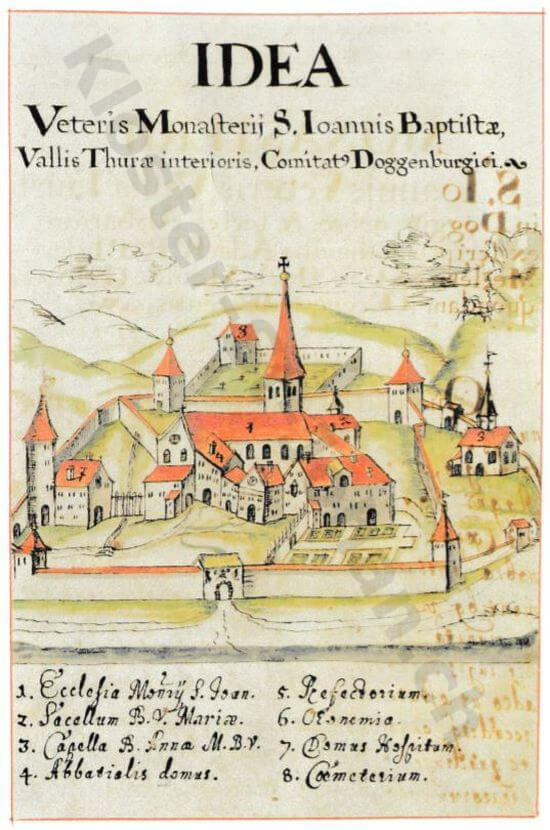 IDEA
Veteris Monasterij S. Ioannis Baptistæ,
Vallis Thuræ interioris, Comitatꝰ Doggenburgici.
1. Ecclesia Mon̄rij S. Ioan.
2. Sacellum B. V. Mariæ.
3. Capella B. Annæ M. B. V.
4. Abbatialis domus.
5. Refectorium.
6. Oeconomia.
7. Domus Hospitum.
8. Coemeterium.